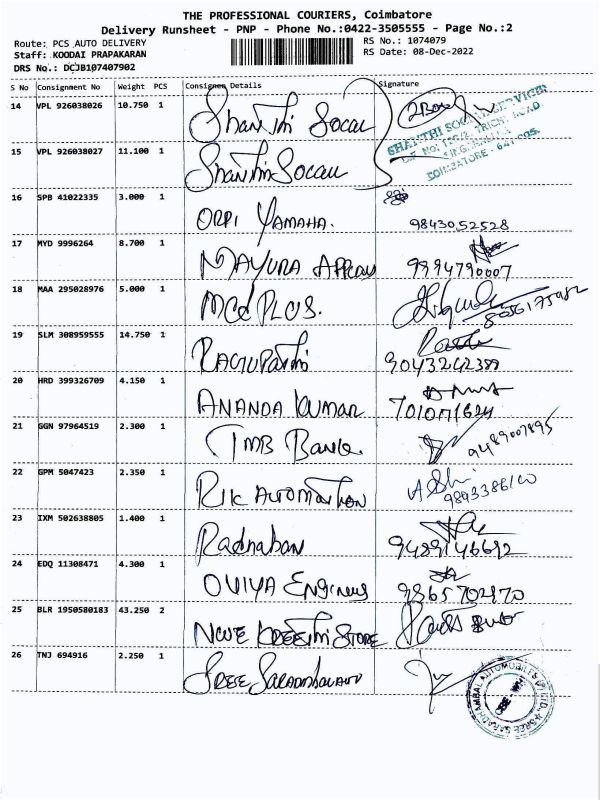 THE PROFESSIONAL COURIERS, Coimbatore
Delivery Runsheet - PNP - Phone No.:0422-3505555 - Page No.:2
Route: PCS AUTO DELIVERY RS No.: 1074079
Staff: KOODAI PRAPAKARAN RS Date: 08-Dec-2022
DRS No.: DCJB107407902
S No Consignment No Weight PCS Consignee Details Signature
14 VPL 926038026 10.750 1 Shanthi Socau
SHANTHI SOCIAL SERVICES
COIMBATORE - 641 005.
15 VPL 926038027 11.100 1 Shanthi Socau
16 SPB 41022335 3.000 1 ORPI YAMAHA. 9843052528
17 MYD 9996264 8.700 1 MAYURA 9994790007
18 MAA 295028976 5.000 1 MCd PLUS. 8056175982
19 SLM 308959555 14.750 1 9043242389
20 HRD 399326709 4.150 1 ANANDA KUMAR
21 GGN 97964519 2.300 1 TMB Bank. 9489007895
22 GPM 5047423 2.350 1 Rik AUTOMATION
23 IXM 502638805 1.400 1 9489146692
24 EDQ 11308471 4.300 1 OVIYA Engineers 9865702170
25 BLR 1950580183 43.250 2 STORE
26 TNJ 694916 2.250 1 SREE